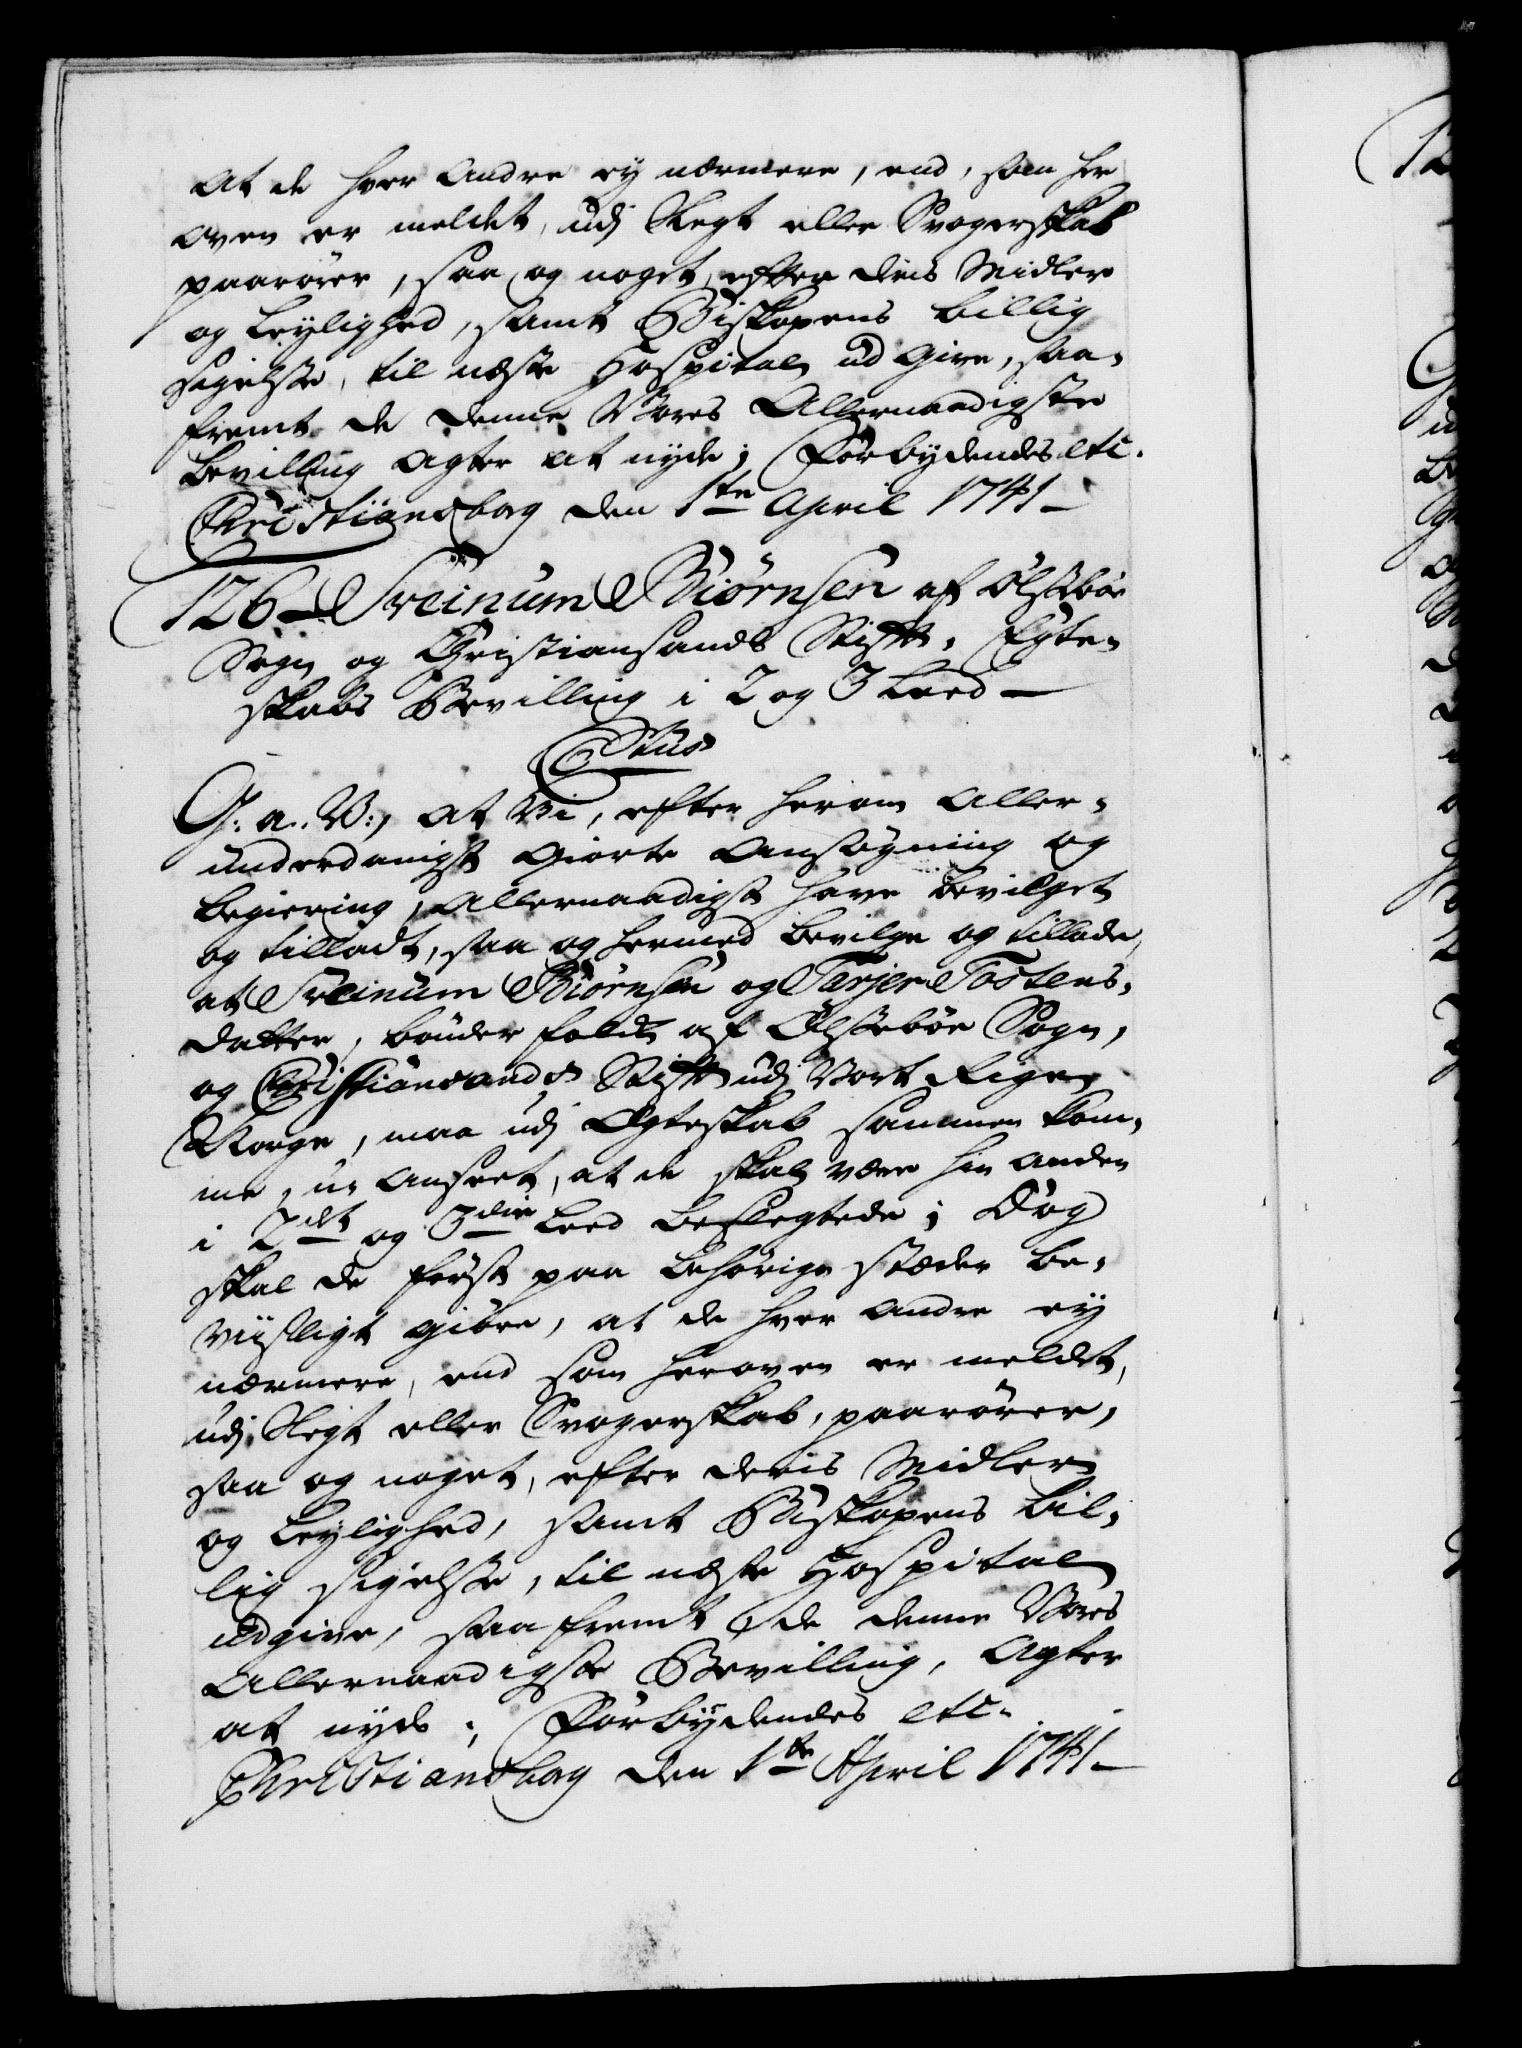 at de hver andre ey nærmere, end, som her
oven er meldet, udj Slegt eller Svogerskab
paarörer, saa og noget, efter deris Midler
og Leylighed, samt Biskopens billig
sigelse, til næste Hospital ud give, saa-
fremt de denne Vores Allernaadigste
Bevilling agter at nyde; Forbydendes etc.
Christiansborg den 1ste April 1741 –
126 – Sveinum Biörnsen af Ölseböe
Sogn og Christiansands Stift, Egte-
skabs Bevilling i 2 og 3 Leed –
C 6tus
G: a: V:, at Vi, efter herom aller-
underdanigst giorte Ansögning og
begiering, Allernaadigst have bevilget
og tilladt, saa og hermed bevilge og tillade,
at Sveinum Biörnsen og Tarjer Tostens-
datter, bönder folck af Ölseböe Sogn,
og Christiansands Stift udj Vort Rige
Norge, maa udj Ægteskab sammen kom-
me, u-anseet, at de skal være hin anden
i 2det og 3die Leed beslegtede; Dog
skal de först paa behörige stæder be-
viisligt giöre, at de hver andre ey
nærmere, end som heroven er meldet,
udj Slegt eller Svogerskab, paarörer,
saa og noget, efter deris Midler
og Leylighed, samt Biskopens bil-
lig sigelse, til næste Hospital
udgive, saa fremt de denne Vores
Allernaadigste Bevilling, agter
at nyde; Forbydendes etc.
Christiansborg den 1ste April 1741 –
12